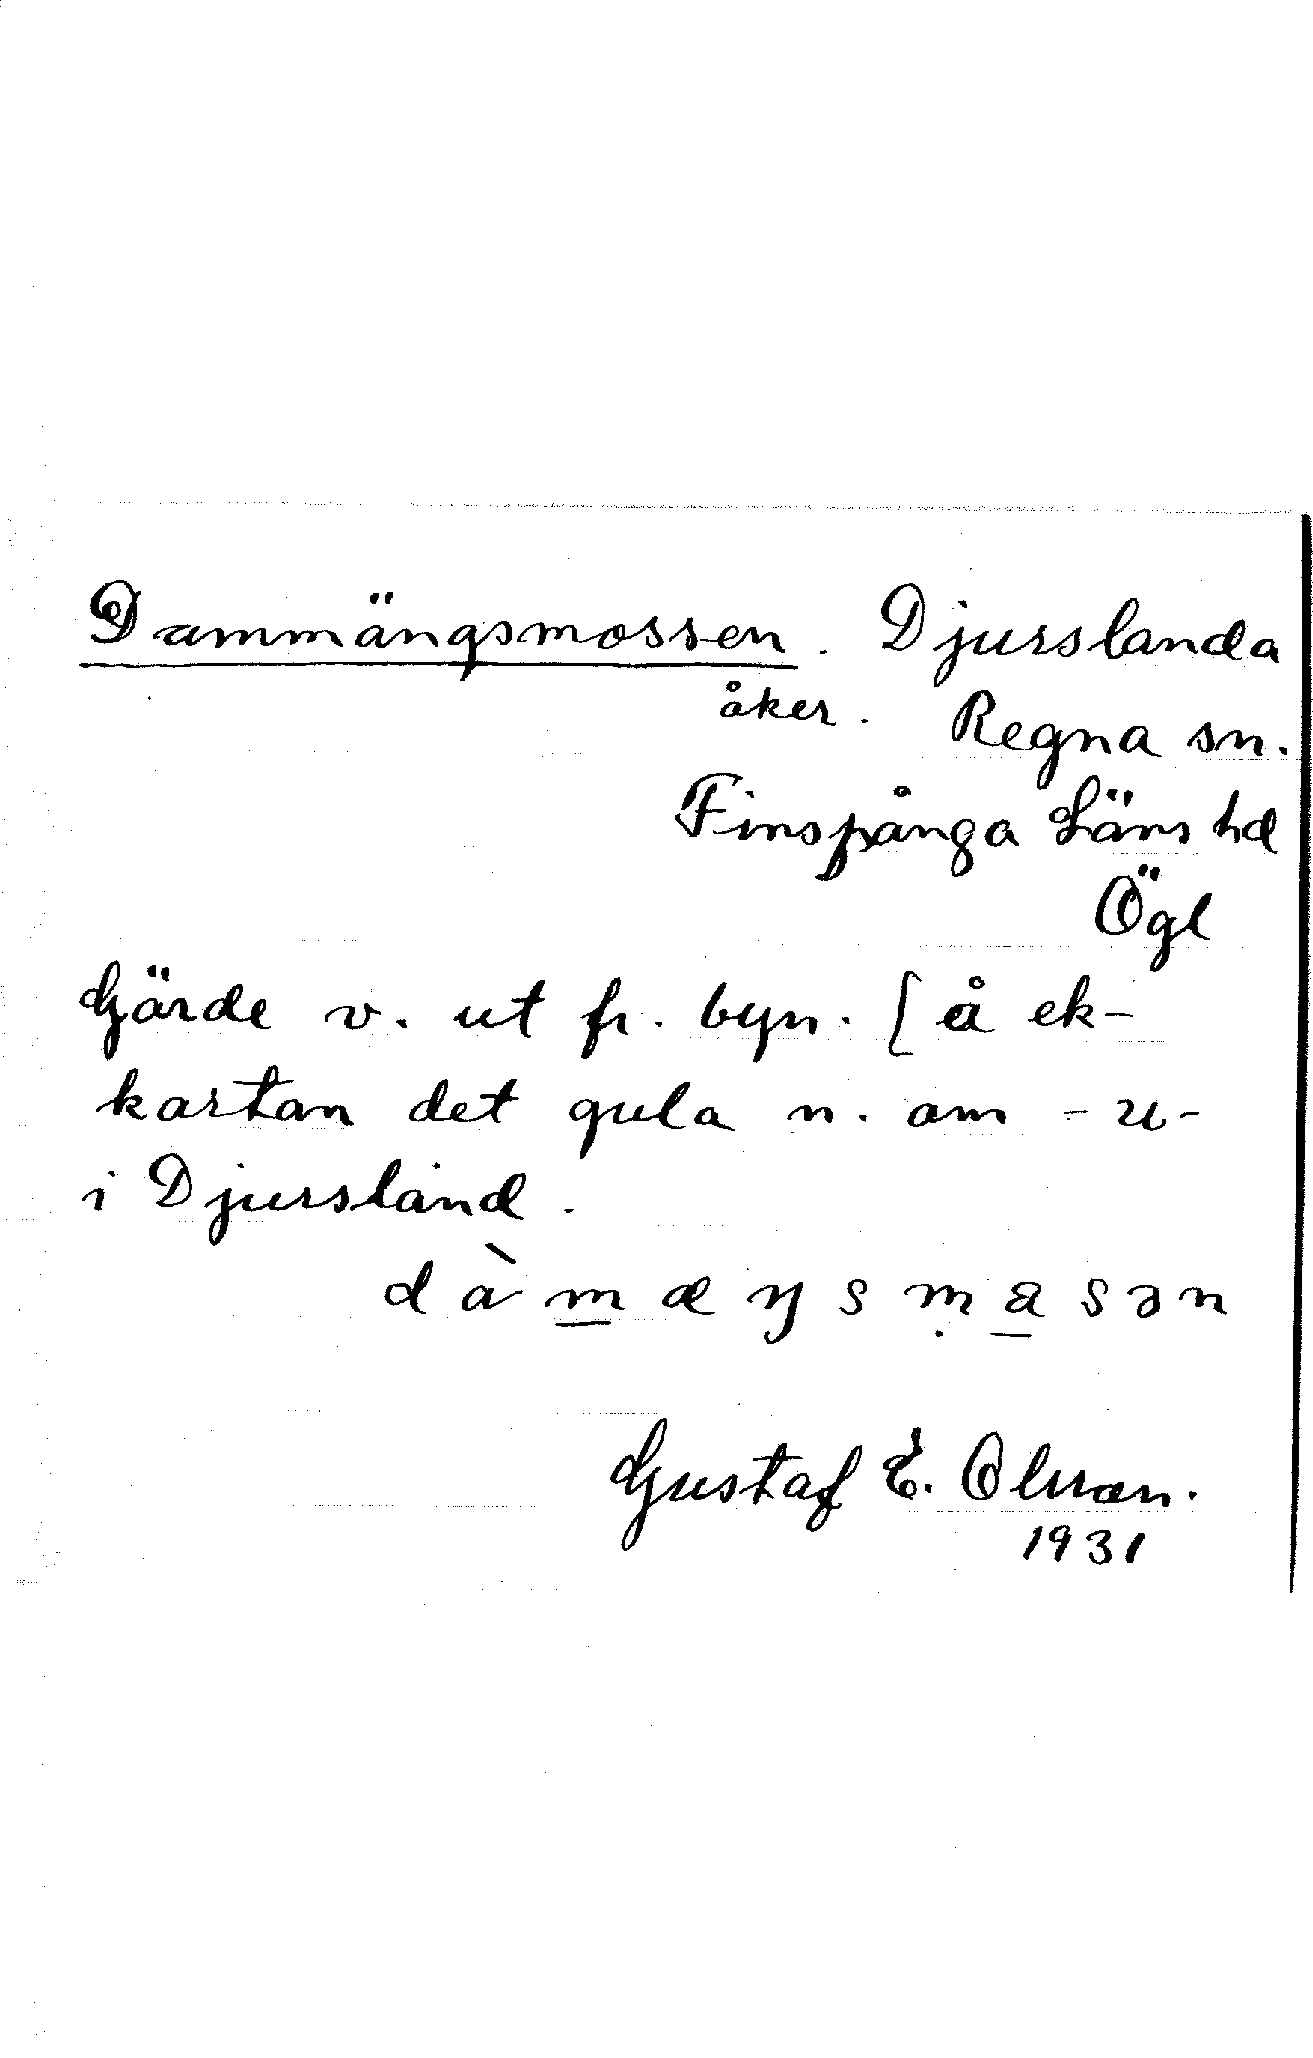 Dammängsmossen. Djurslanda
åker. Regna sn.
Finspånga Läns hd
Ögl
Gärde v. ut fr. byn. [å ek-
kartan det gula n. om -u-
i Djursland.
dàmæŋsmasən
Gustaf E. Olsson.
1931